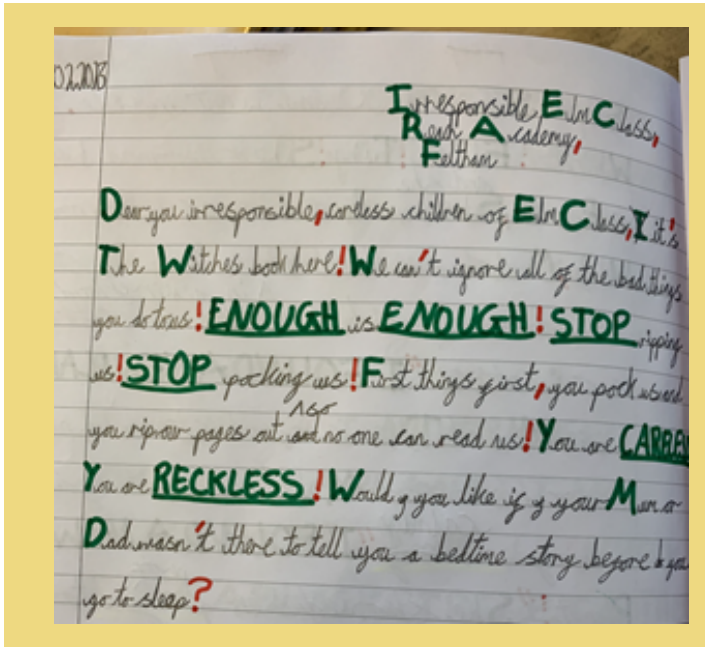 02.2018
Irresponsible Elm Class,
Reach Academy,
Feltham
Dear you irresponsible, careless children of Elm Class, I it's
The Witches book here! We can't ignore all of the bad things
you do to us! ENOUGH is ENOUGH! STOP ripping
us! STOP pocking us! First things first, you pock us and
so
you rip our pages out and no one can read us! You are
You are RECKLESS! Would y you like if y your Mum or
Dad wasn't there to tell you a bedtime story before b you
go to sleep?